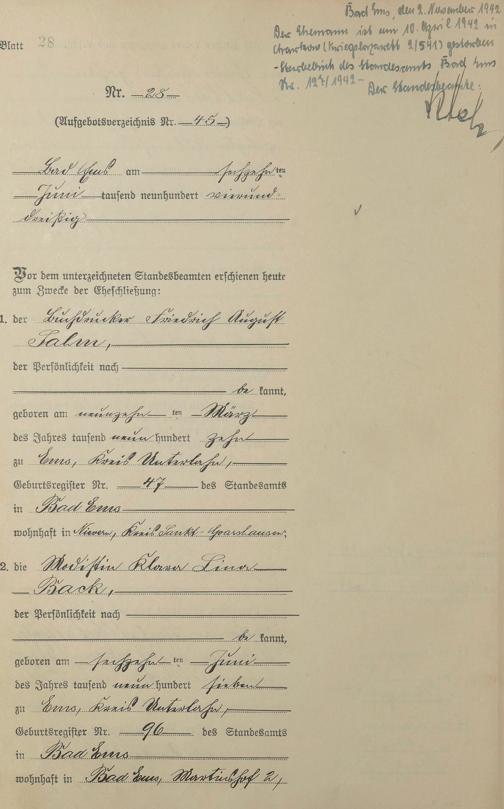 Bad Ems, den 2. November 1942
Der Ehemann ist am 10. April 1942 in
Charkow (Kriegslazarett 2/541) gestorben
- Sterbebuch des Standesamts Bad Ems
Nr. 127/1942 -
Der Standesbeamte:
Blatt 28
Nr. 28
(Aufgebotsverzeichnis Nr. 45)
Bad Ems am sechzehn ten
Juni tausend neunhundert vierund-
dreißig
Vor dem unterzeichneten Standesbeamten erschienen heute
zum Zwecke der Eheschließung:
1. der Buchdrucker Friedrich August
Salm,
der Persönlichkeit nach
be kannt,
geboren am neunzehn ten März
des Jahres tausend neun hundert zehn
zu Ems, Kreis Unterlahn,
Geburtsregister Nr. 47 des Standesamts
in Bad Ems
wohnhaft in Nievern, Kreis Sankt-Goarshausen.
2. die Modistin Klara Lina
Back,
der Persönlichkeit nach
be kannt,
geboren am sechzehn ten Juni
des Jahres tausend neun hundert sieben
zu Ems, Kreis Unterlahn,
Geburtsregister Nr. 96 des Standesamts
in Bad Ems
wohnhaft in Bad Ems, Martinshof 2,